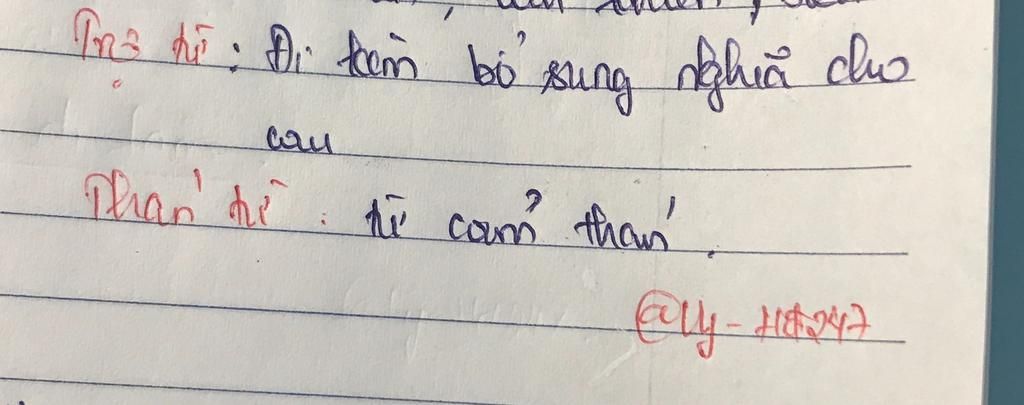 Trợ từ : Đi kèm bổ sung nghĩa cho
câu
Thán từ : từ cảm thán.
@Uy-